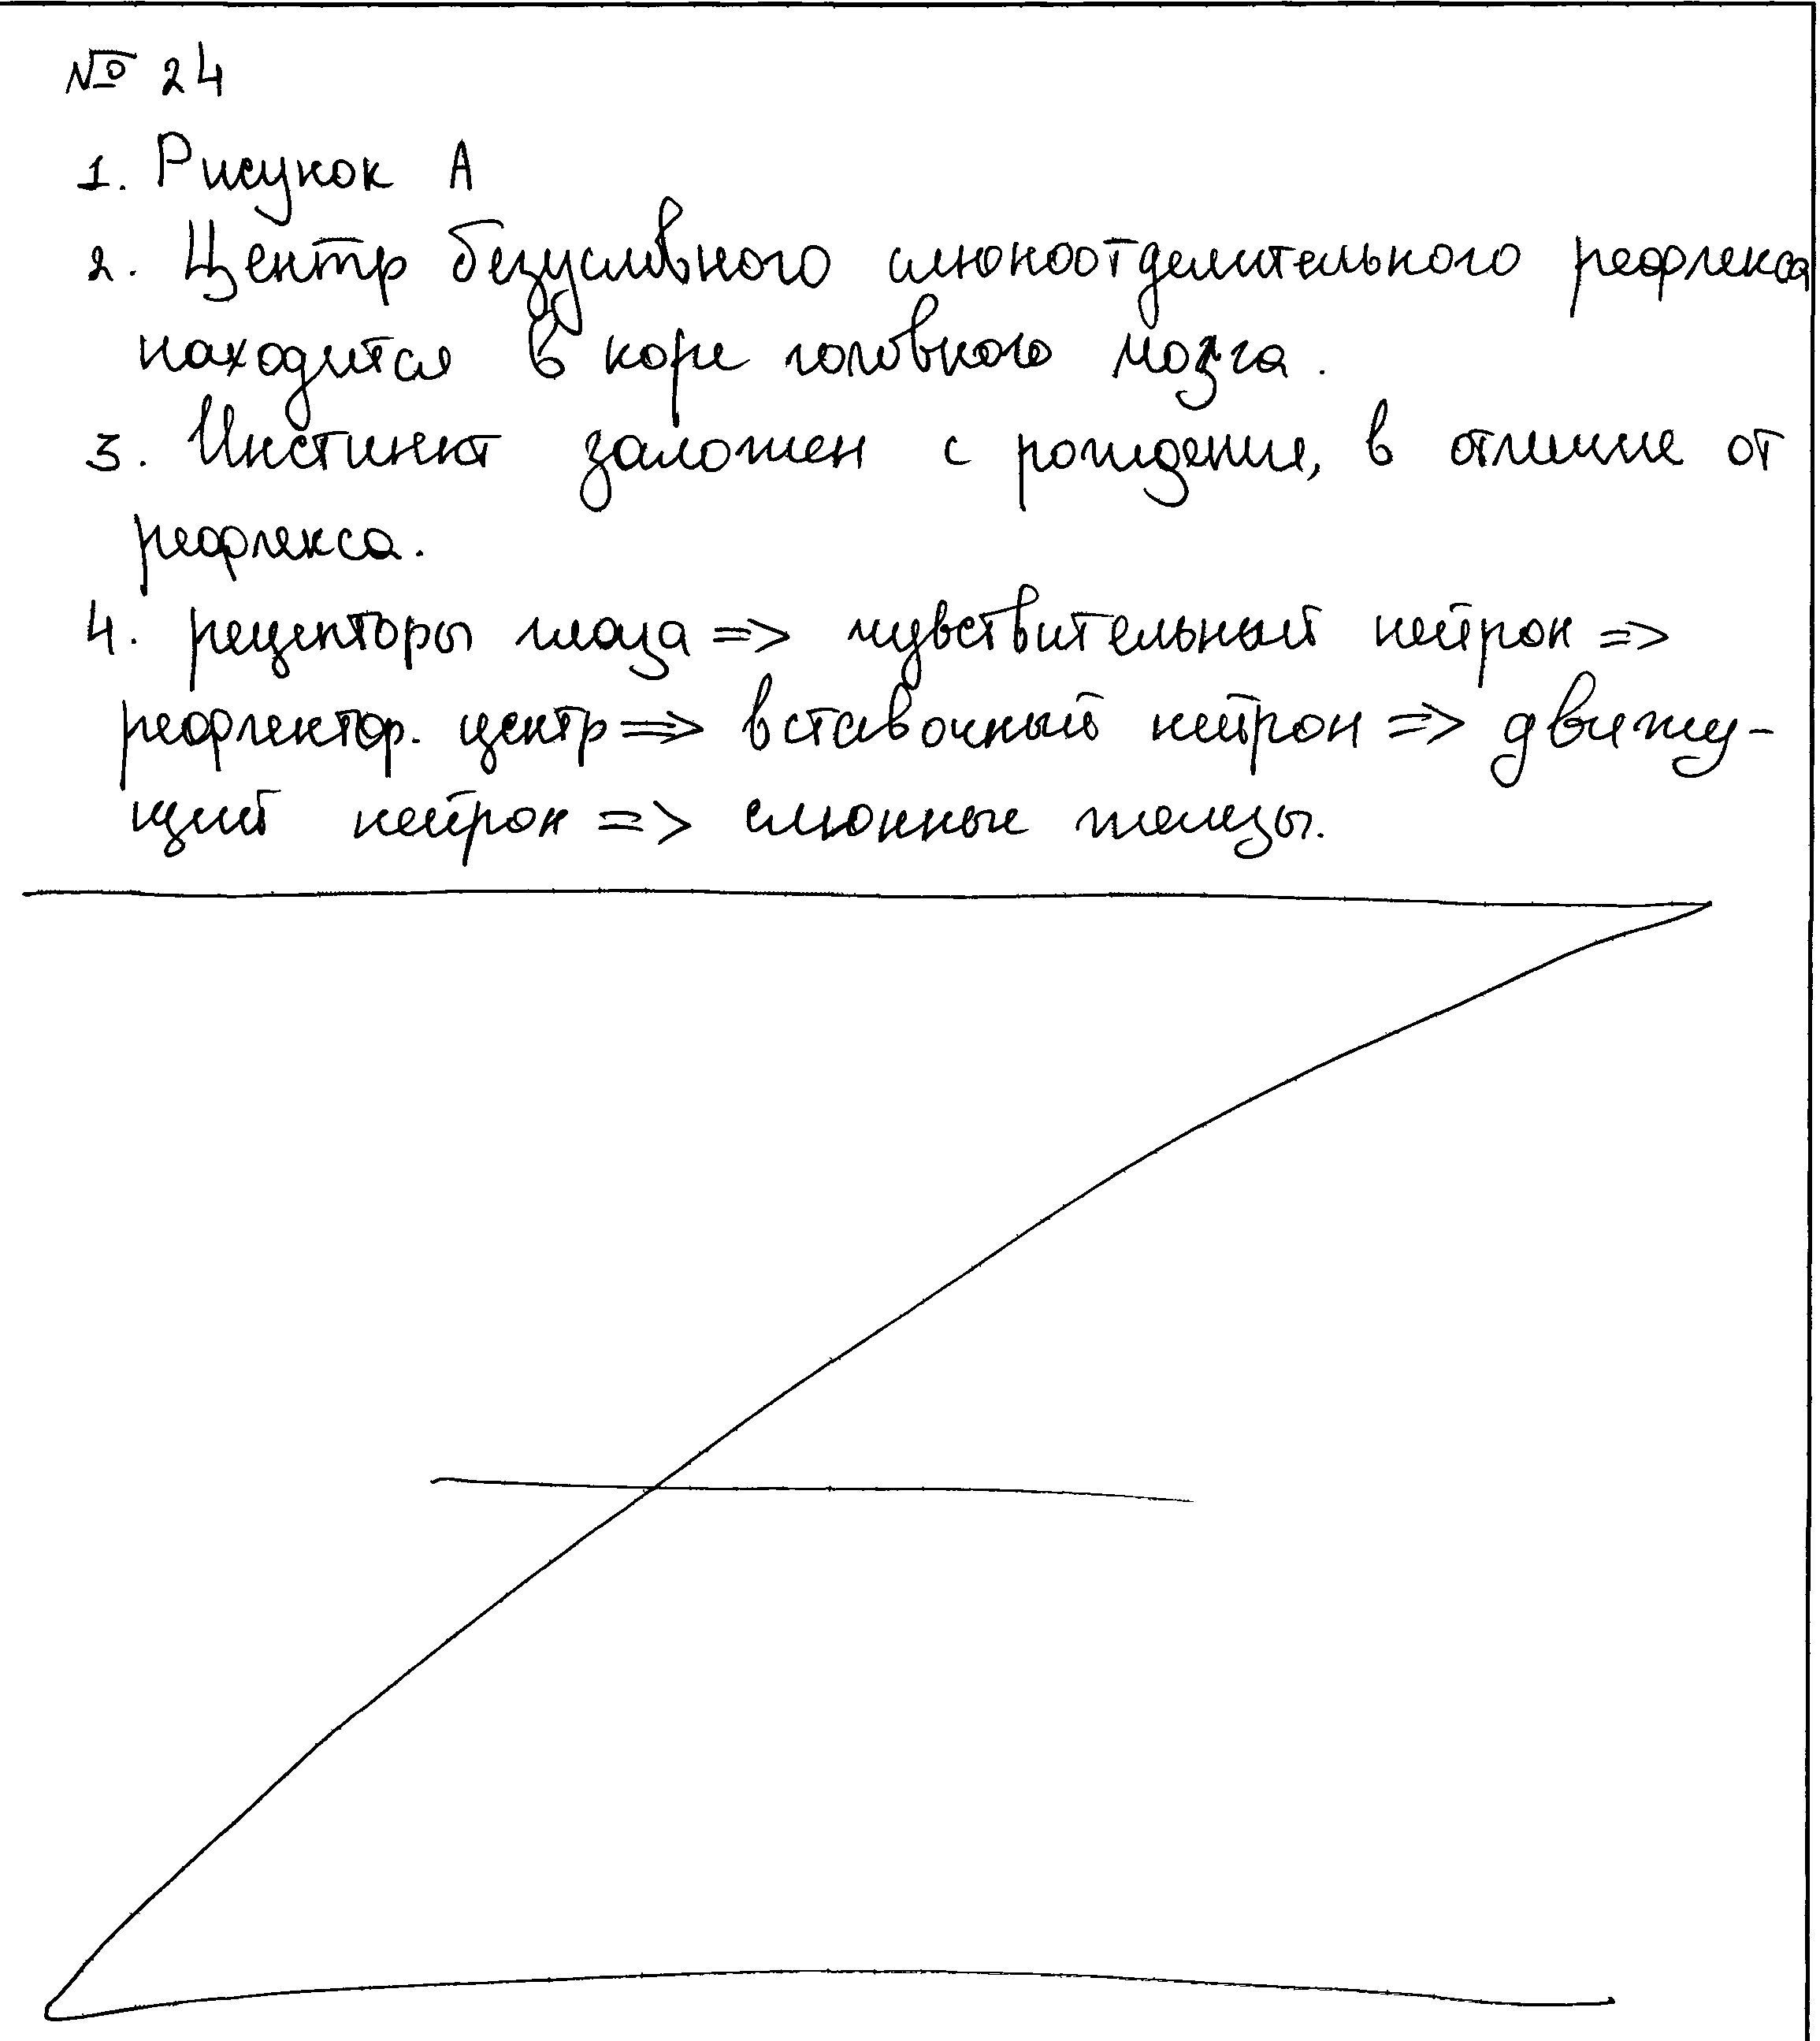 № 24
1. Рисунок А
2. Центр безусливного слюноотделительного рефлекса
находится в коре головного мозга.
3. Инстинкт заложен с рождения, в отличие от
рефлекса.
4. рецепторы глаза => чувствительный нейрон =>
рефлектор. центр => вставочный нейрон => движу-
щий нейрон => слюнные железы.